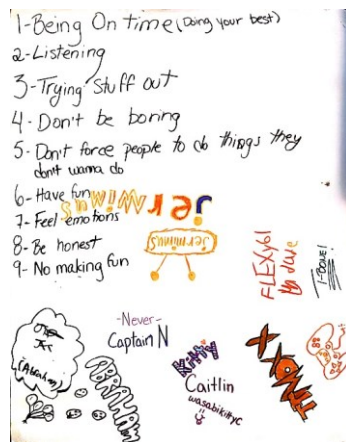 1-Being On time (Doing your best)
2-Listening
3-Trying stuff out
4-Don't be boring
5-Don't force people to do things they
don't wanna do
6-Have fun
7-Feel emotions
8-Be honest
9-No making fun
Jerminus
Jerminus
FLEXy61
T-BONE!
-Never-
Captain N
Kitty
Caitlin
wasabikittyc
(Abraham)
ABRAHAM